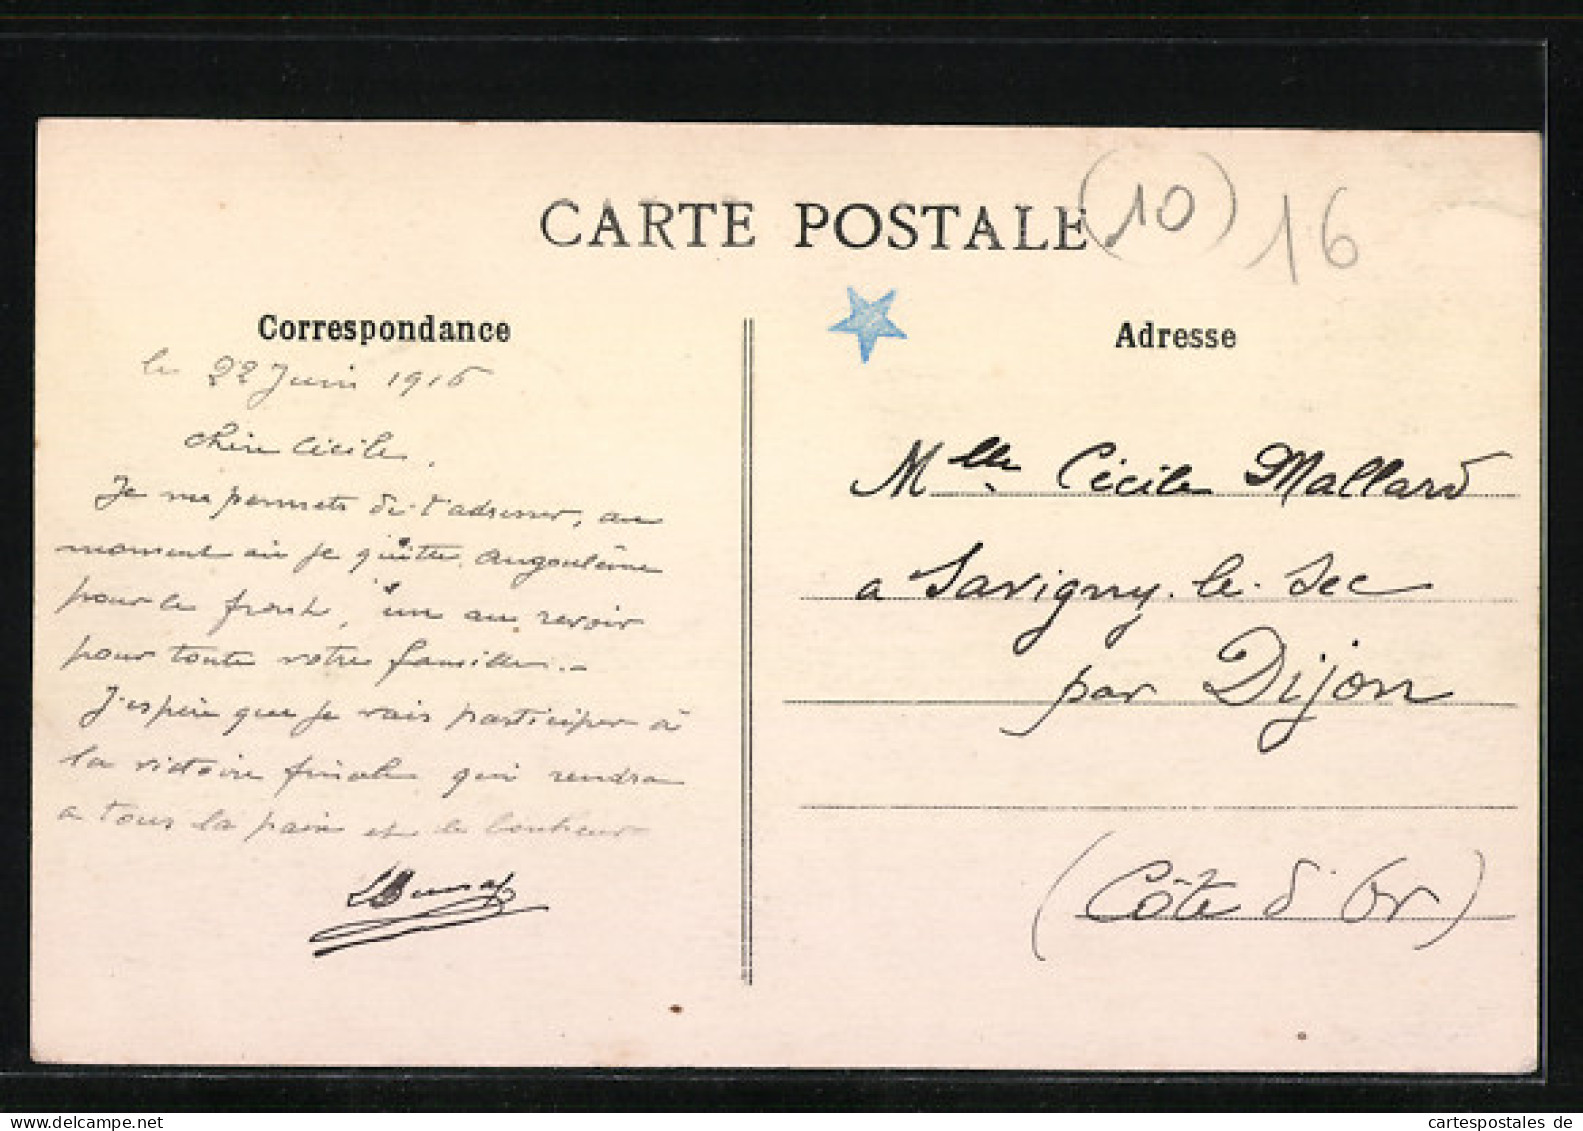 CARTE POSTALE
(10) 16
Correspondance
le 22 Juin 1916
Chère Cécile,
Je me permets de t'adresser, au
moment où je quitte Angoulême
pour le front, un au revoir
pour toute votre famille. -
J'espère que je vais participer à
la victoire finale qui rendra
a tous la paix et le bonheur
Adresse
Mlle Cécile Mallard
a Savigny-le-Sec
par Dijon
(Côte d'Or)
hippostcard